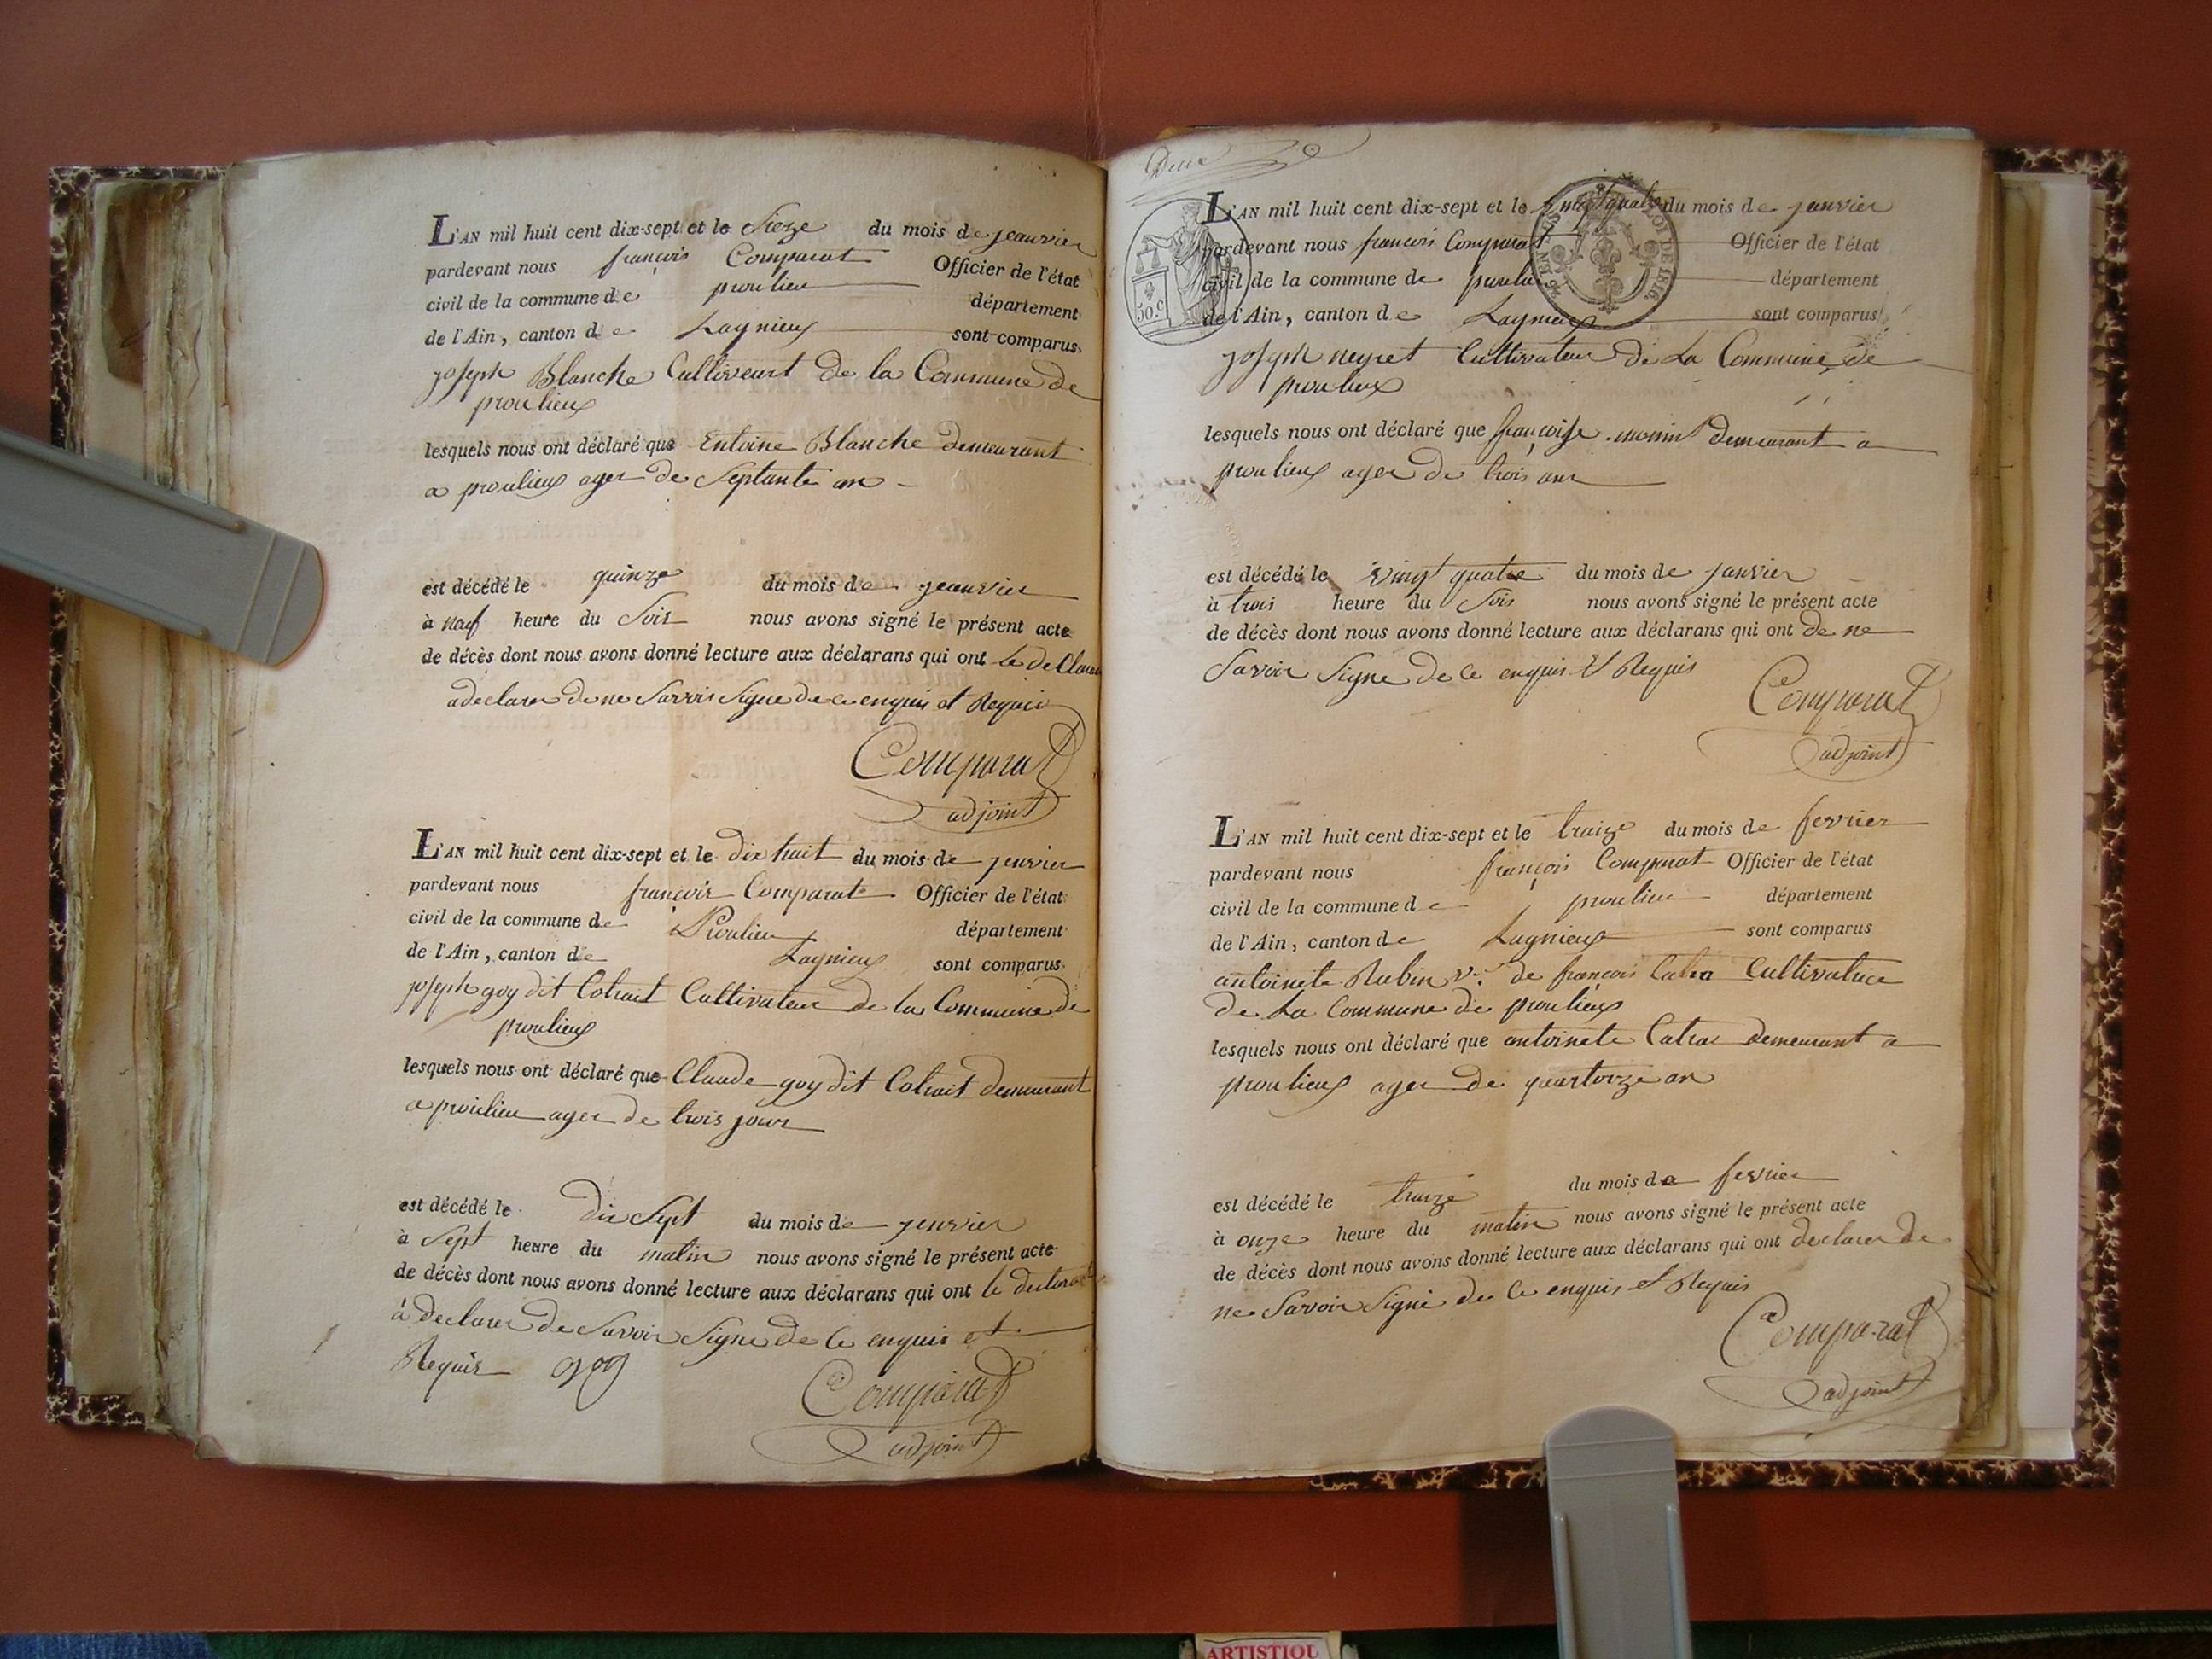 L'AN mil huit cent dix-sept et le Sieze du mois de jeanvier
pardevant nous françois Comparat Officier de l'état
civil de la commune de proulieu département
de l'Ain, canton de Lagnieux sont comparus
joseph Blanche Cultiveurt de la Commune de
proulieux
lesquels nous ont déclaré que Entoine Blanche demeurant
a proulieux ager de Septante an
est décédé le quinze du mois de jeanvier
à neuf heure du Soir nous avons signé le présent acte
de décès dont nous avons donné lecture aux déclarans qui ont
a declarer de ne Savoir Signe de ce enquis et Requis
Comparat
adjoint
L'AN mil huit cent dix-sept et le dix huit du mois de jenvier
pardevant nous françois Comparat Officier de l'état
civil de la commune de Proulieu département
de l'Ain, canton de Lagnieux sont comparus
joseph goy dit Cotrait Cultivateur de la Commune de
proulieux
lesquels nous ont déclaré que Claude goy dit Cotrait demeurant
a proulieu ager de trois jour
est décédé le dix Sept du mois de jenvier
à Sept heure du matin nous avons signé le présent acte
de décès dont nous avons donné lecture aux déclarans qui ont le
à declarer de Savoir Signe de ce enquis et
Requis goy
Comparat
adjoint
L'AN mil huit cent dix-sept et le vingt quatre du mois de janvier
pardevant nous francois Comparat Officier de l'état
civil de la commune de proulieu département
de l'Ain, canton de Lagnieux sont comparus
50 c.
LOI DE 1816.
joseph neyret Cultivateur de La Commune de
proulieux
lesquels nous ont déclaré que françoise monin demeurant a
proulieux ager de trois ans
est décédé le vingt quatre du mois de janvier
à trois heure du Soir nous avons signé le présent acte
de décès dont nous avons donné lecture aux déclarans qui ont de ne
Savoir Signe de ce enquis et Requis
Comparat
adjoint
L'AN mil huit cent dix-sept et le traize du mois de fevrier
pardevant nous françois Comparat Officier de l'état
civil de la commune de proulieu département
de l'Ain, canton de Lagnieux sont comparus
antoinete Rubin v.e de francois Catra Cultivatrice
de La Commune de proulieux
lesquels nous ont déclaré que antoinete Catra demeurant a
proulieux ager de quartorze an
est décédé le traize du mois de fevrier
à onze heure du matin nous avons signé le présent acte
de décès dont nous avons donné lecture aux déclarans qui ont declarer de
ne Savoir Signé de ce enquis et Requis
Comparat
adjoint
ARTISTIQU